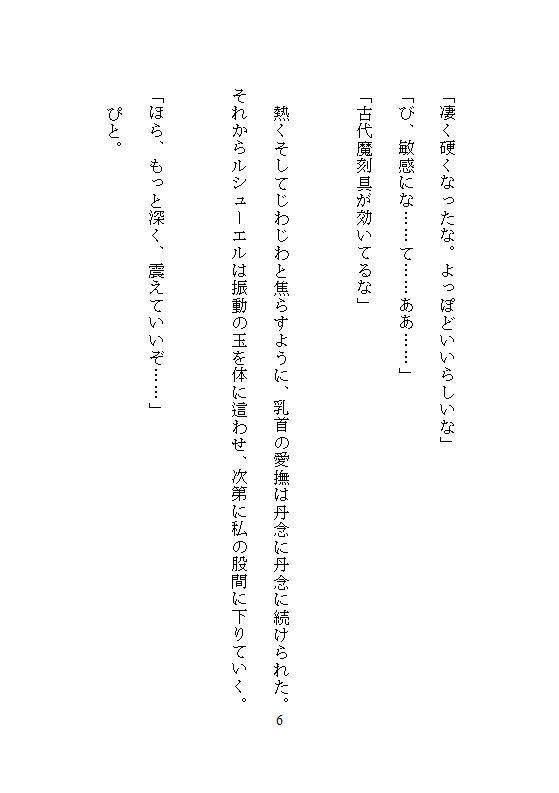 「凄く硬くなったな。よっぽどいいらしいな」
「び、敏感にな……て……ああ……」
「古代魔刻具が効いてるな」
熱くそしてじわじわと焦らすように、乳首の愛撫は丹念に丹念に続けられた。
それからルシューエルは振動の玉を体に這わせ、次第に私の股間に下りていく。
「ほら、もっと深く、震えていいぞ……」
ぴと。
6